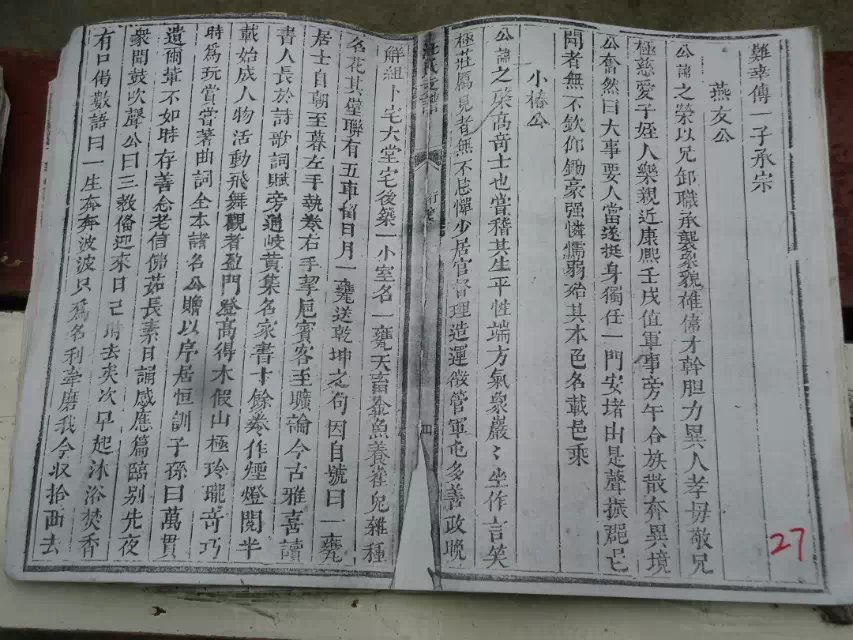 難幸傳一子承宗
燕友公
公諱之榮以兄卸職承襲象貌雄偉才幹胆力異人孝毋敬兄
極慈愛子姪人樂親近康熙壬戌值軍事旁午合族散奔異境
公奮然曰大事要人當遂挺身獨任一門安堵由是聲振邑
聞者無不欽仰鋤豪强憐懦弱始其本色名載邑乘
小椿公
公諱之棨高奇士也嘗稽其生平性端方氣象嚴〻坐作言笑
極莊厲見者無不忌憚少居官督理造運徵管軍屯多善政晚
行
四
解組卜宅大堂宅後築一小室名一甕天畜金魚養雀兒雜種
名花其堂聯有五車留日月一甕送乾坤之句因自號曰一甕
居士自朝至暮左手執卷右手挈巵賓客至曠論今古雅喜讀
書人長於詩歌詞賦旁通岐黄集名家書十餘卷作煙燈閱半
載始成人物活動飛舞觀者盈門登高得木假山極玲瓏奇巧
時爲玩賞嘗著曲詞全本諸名公贈以序居恒訓子孫曰萬貫
遺爾輩不如時存善念老信佛茹長素日誦感應篇臨别先夜
衆聞鼓吹聲公曰三教俻迎來日已時去矣次早起沐浴焚香
有口偈數語曰一生奔奔波波只爲名利牽磨我今収拾西去
27